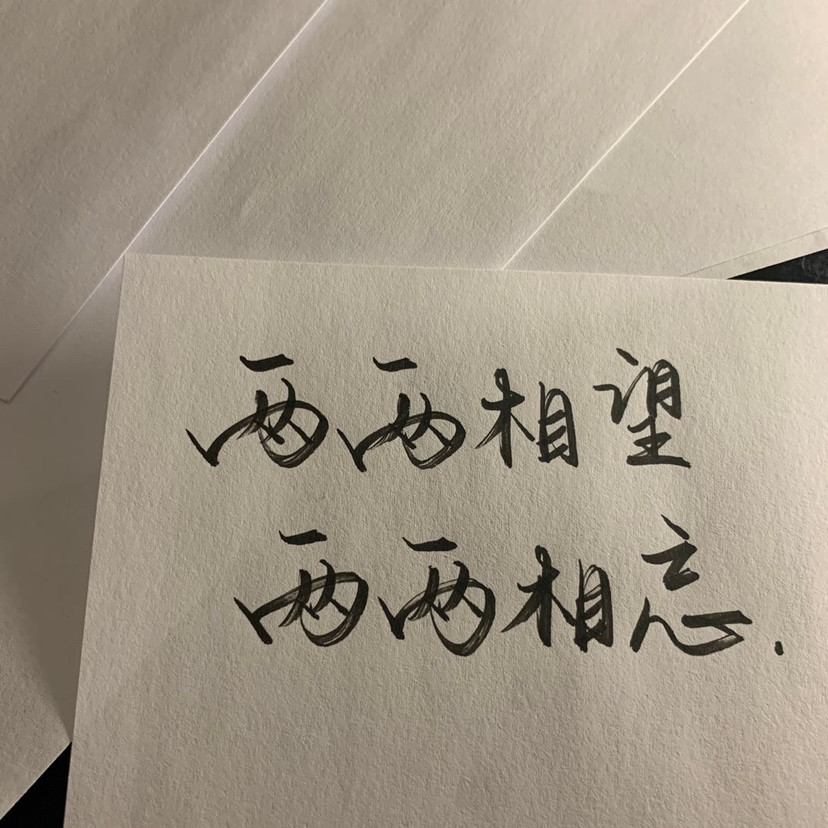 两两相望
两两相忘.